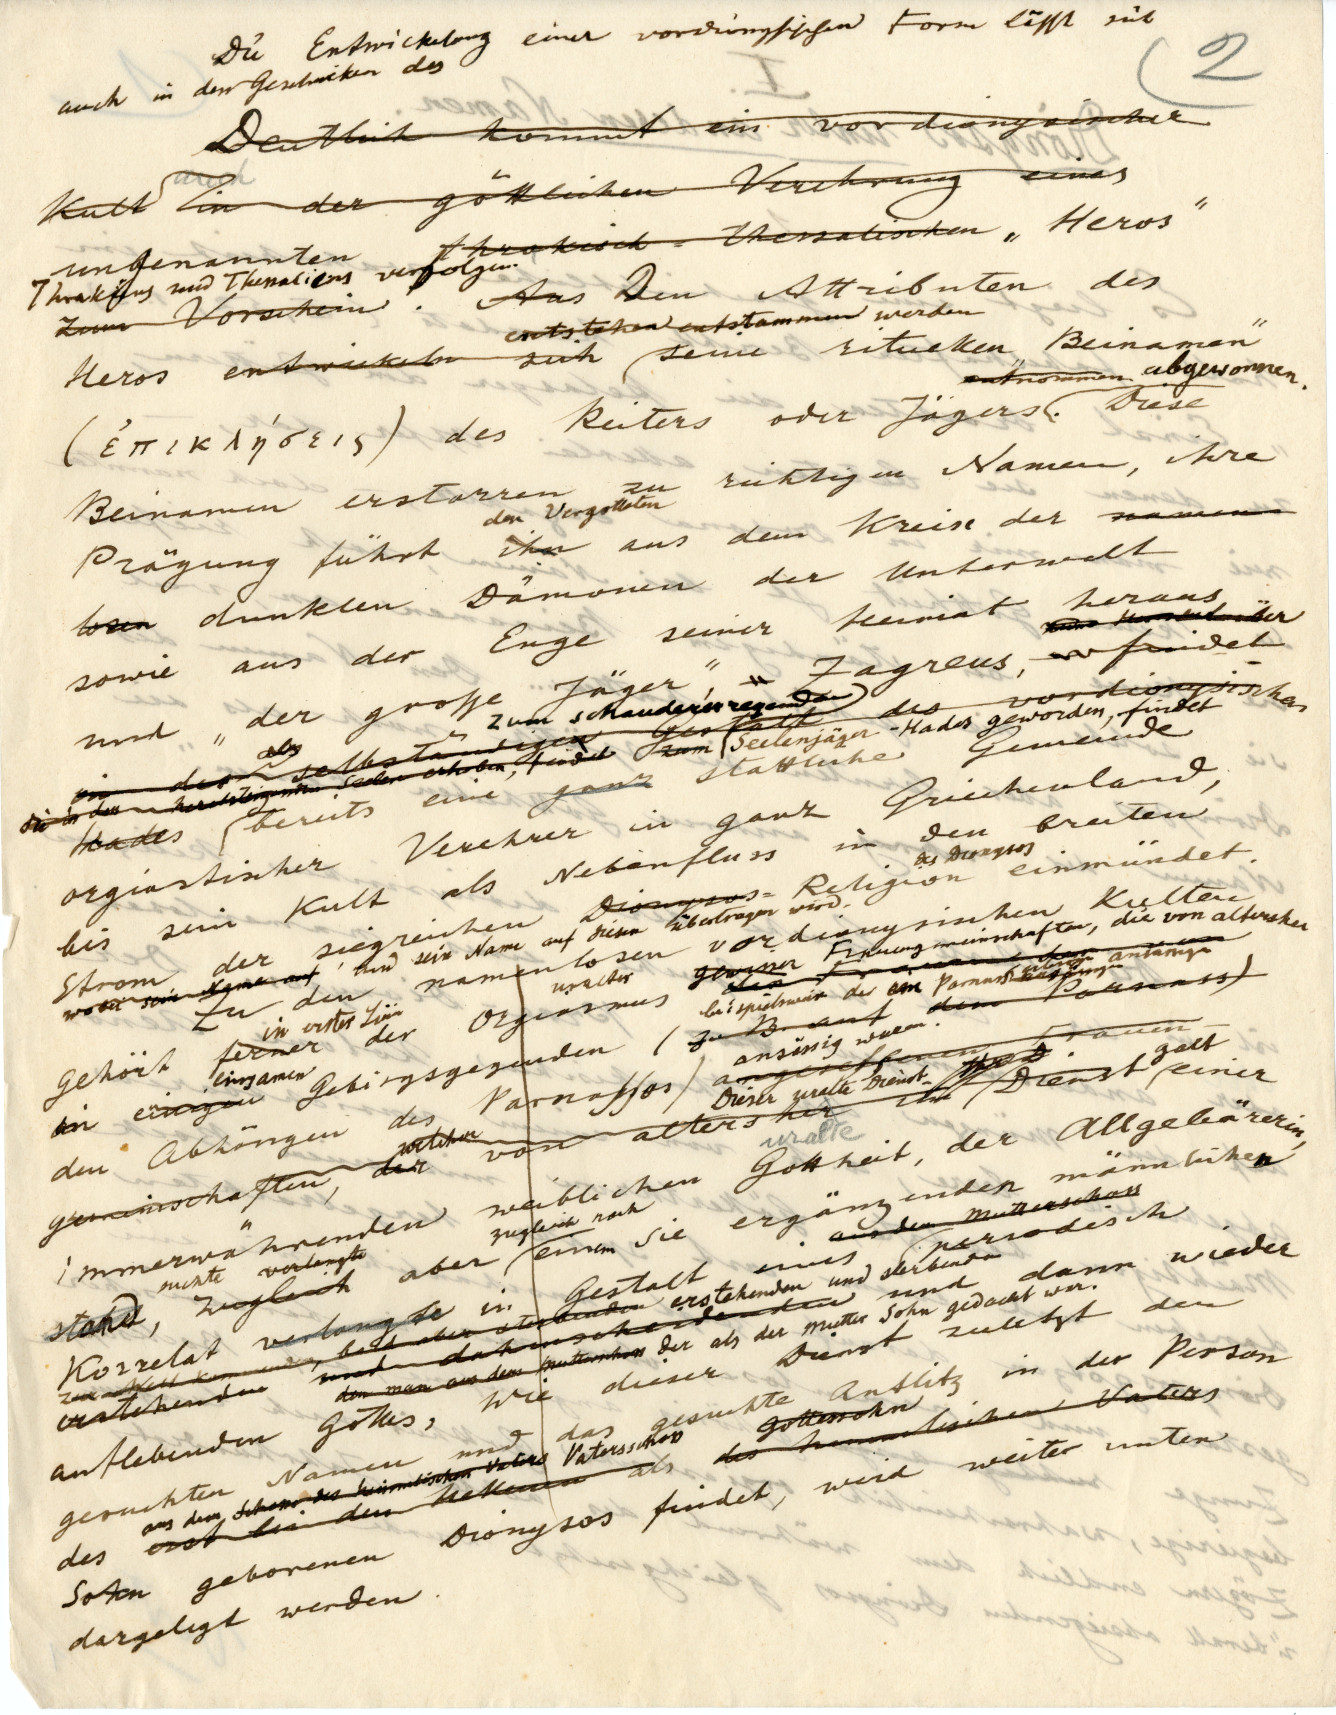 (2
Die Entwickelung einer vordionysischen Form lässt sich
auch in den Geschicken des
Deutlich kommt ein vordionysischer
auch
Kult in der göttlichen Verehrung eines
ungenannten thrakisch-thessalischen „Heros"
Thrakiens und Thessaliens verfolgen.
zum Vorschein. Aus Den Attributen des
entstehen entstammen werden
Heros entwickeln sich seine rituellen Beinamen"
entnommen abgewonnen.
(ἐπικλήσεις) des Reiters oder Jägers. Diese
Beinamen erstarren zu richtigen Namen, ihre
den Vergotteten
Prägung führt ihn aus dem Kreise der namen-
losen dunklen Dämonen der Unterwelt
sowie aus der Enge seiner Heimat heraus
und „der grosse Jäger" Zagreus, findet
zum schaudererregenden
in der selbständigen Gestalt des vordionysischen
als Seelenjäger-Hades geworden, findet
Hades bereits eine ganz stattliche Gemeinde
orgiastischer Verehrer in ganz Griechenland,
bis sein Kult als Nebenfluss in den breiten
des Dionysos
Strom der siegreichen Dionysos-Religion einmündet.
wobei sein Name auf und sein Name auf diesen übertragen wird.
Zu den namenlosen vordionysischen Kulten
in erster Linie uralter gewisser Frauengemeinschaften, die von altersher
gehört ferner der Orgiasmus der Frauen
beispielsweise der am Parnass
einsamen ansässig waren.
in einigen Gebirgsgegenden (z. B. auf dem Parnass)
den Abhängen des Parnassos) angesessenen Frauen
welcher Dieser uralte Dienst galt
gemeinschaften, der von altersher im Dienst einer
uralte
immerwährenden weiblichen Gottheit, der Allgebärerin,
mehte verlangte zugleich nach
stand, zugleich aber einem sie ergänzenden männlichen
aus dem Mutterschoss
Korrelat verlangte in Gestalt eines periodisch
bald aber sterbenden erstehenden und sterbenden
erstehenden und dahinscheidenden und dann wieder
den man aus dem Mutterschoss der als der Mutter Sohn gedacht war.
auflebenden Gottes, Wie dieser Dienst zuletzt den
gesuchten Namen und das gesuchte Antlitz in der Person
aus dem Schosse des himmlischen Vaters Vatersschoss Gottessohn
des erst bei den Hellenen als des himmlischen Vaters
Sohn geborenen Dionysos findet, wird weiter unten
dargelegt werden.